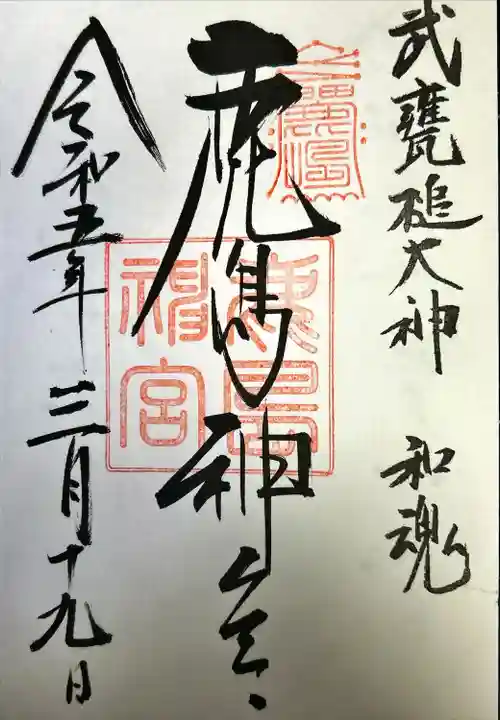 武甕槌大神 和魂
鹿島神宮
鹿島神宮
令和五年 三月十九日